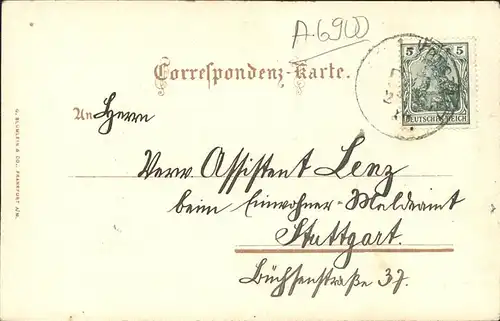 A-6900
5 5
DEUTSCHES REICH
Correspondenz-Karte.
An Herrn
Verw. Assistent Lenz
beim Einwohner-Meldeamt
Stuttgart.
Büchsenstraße 37.
BLÜMLEIN & CO., FRANKFURT A/M.